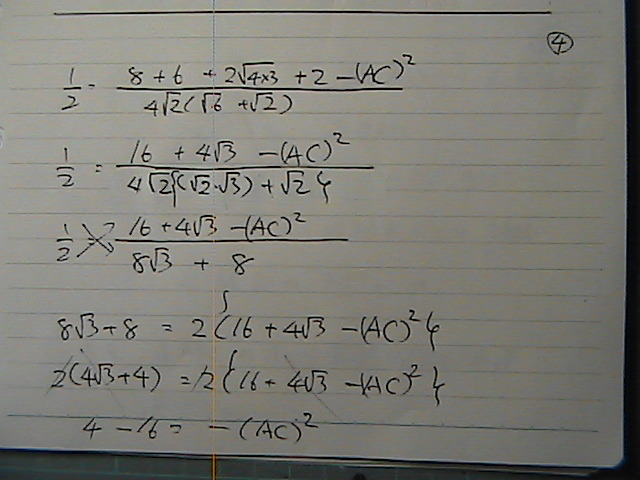 ④
1/2 = (8 + 6 + 2√4×3 + 2 - (AC)²) / (4√2(√6 + √2))
1/2 = (16 + 4√3 - (AC)²) / (4√2{(√2·√3) + √2})
1/2 = (16 + 4√3 - (AC)²) / (8√3 + 8)
8√3 + 8 = 2{16 + 4√3 - (AC)²}
2(4√3 + 4) = 2{16 + 4√3 - (AC)²}
4 - 16 = - (AC)²